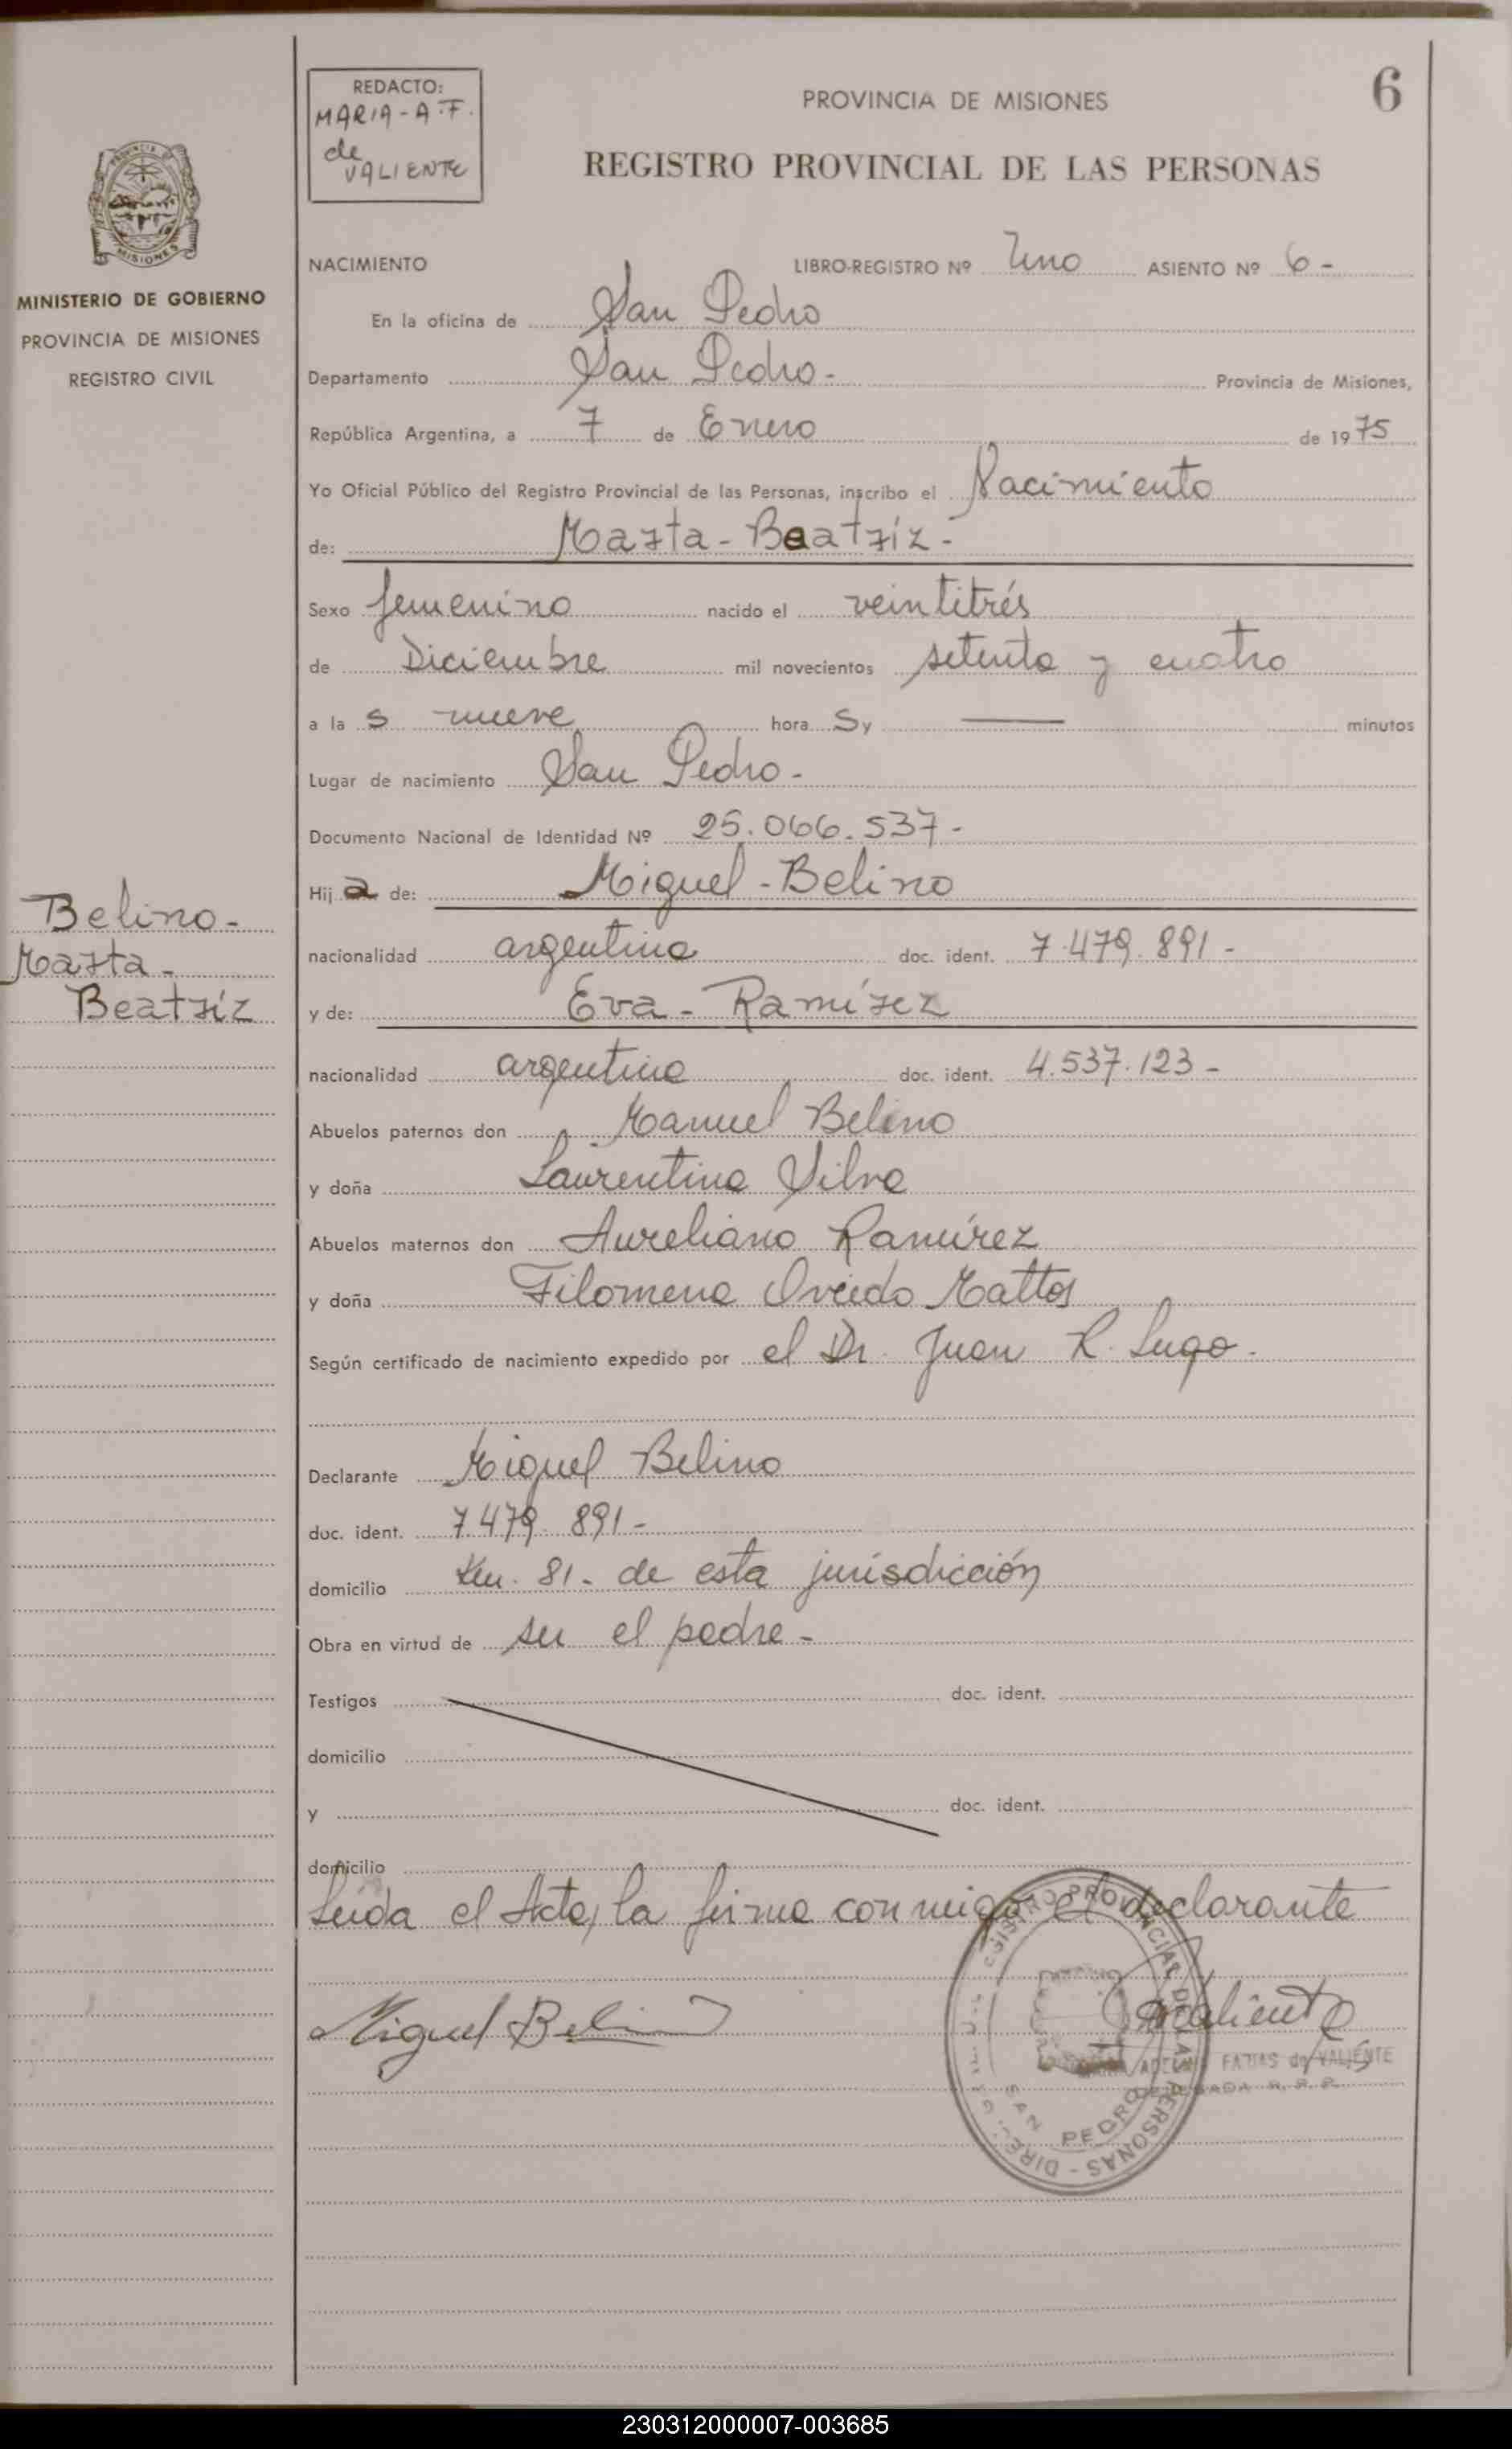 REDACTO:
MARIA-A.F.
de
VALIENTE
PROVINCIA DE MISIONES
6
REGISTRO PROVINCIAL DE LAS PERSONAS
MISIONES
MINISTERIO DE GOBIERNO
PROVINCIA DE MISIONES
REGISTRO CIVIL
NACIMIENTO LIBRO-REGISTRO Nº Uno ASIENTO Nº 6-
En la oficina de San Pedro
Departamento San Pedro- Provincia de Misiones,
República Argentina, a 7 de Enero de 1975
Yo Oficial Público del Registro Provincial de las Personas, inscribo el Nacimiento
de: Marta-Beatriz-
Sexo femenino nacido el veintitrés
de Diciembre mil novecientos setenta y cuatro
a la s nueve hora s y — minutos
Lugar de nacimiento San Pedro-
Documento Nacional de Identidad Nº 25.066.537-
Hij a de: Miguel-Belino
Belino-
Marta-
Beatriz
nacionalidad argentina doc. ident. 7.479.891-
y de: Eva-Ramírez
nacionalidad argentina doc. ident. 4.537.123-
Abuelos paternos don Manuel Belino
y doña Laurentina Silva
Abuelos maternos don Aureliano Ramírez
y doña Filomena Oviedo Mattos
Según certificado de nacimiento expedido por el Dr. Juan R. Lugo.
Declarante Miguel Belino
doc. ident. 7.479.891-
domicilio Km. 81- de esta jurisdicción
Obra en virtud de ser el padre-
Testigos doc. ident.
domicilio
y doc. ident.
domicilio
Leída el Acta, la firma conmigo el declarante
Miguel Belino
Valiente
FARIAS de VALIENTE
DELEGADA R.P.P.
REGISTRO PROVINCIAL DE LAS PERSONAS
SAN PEDRO
230312000007-003685